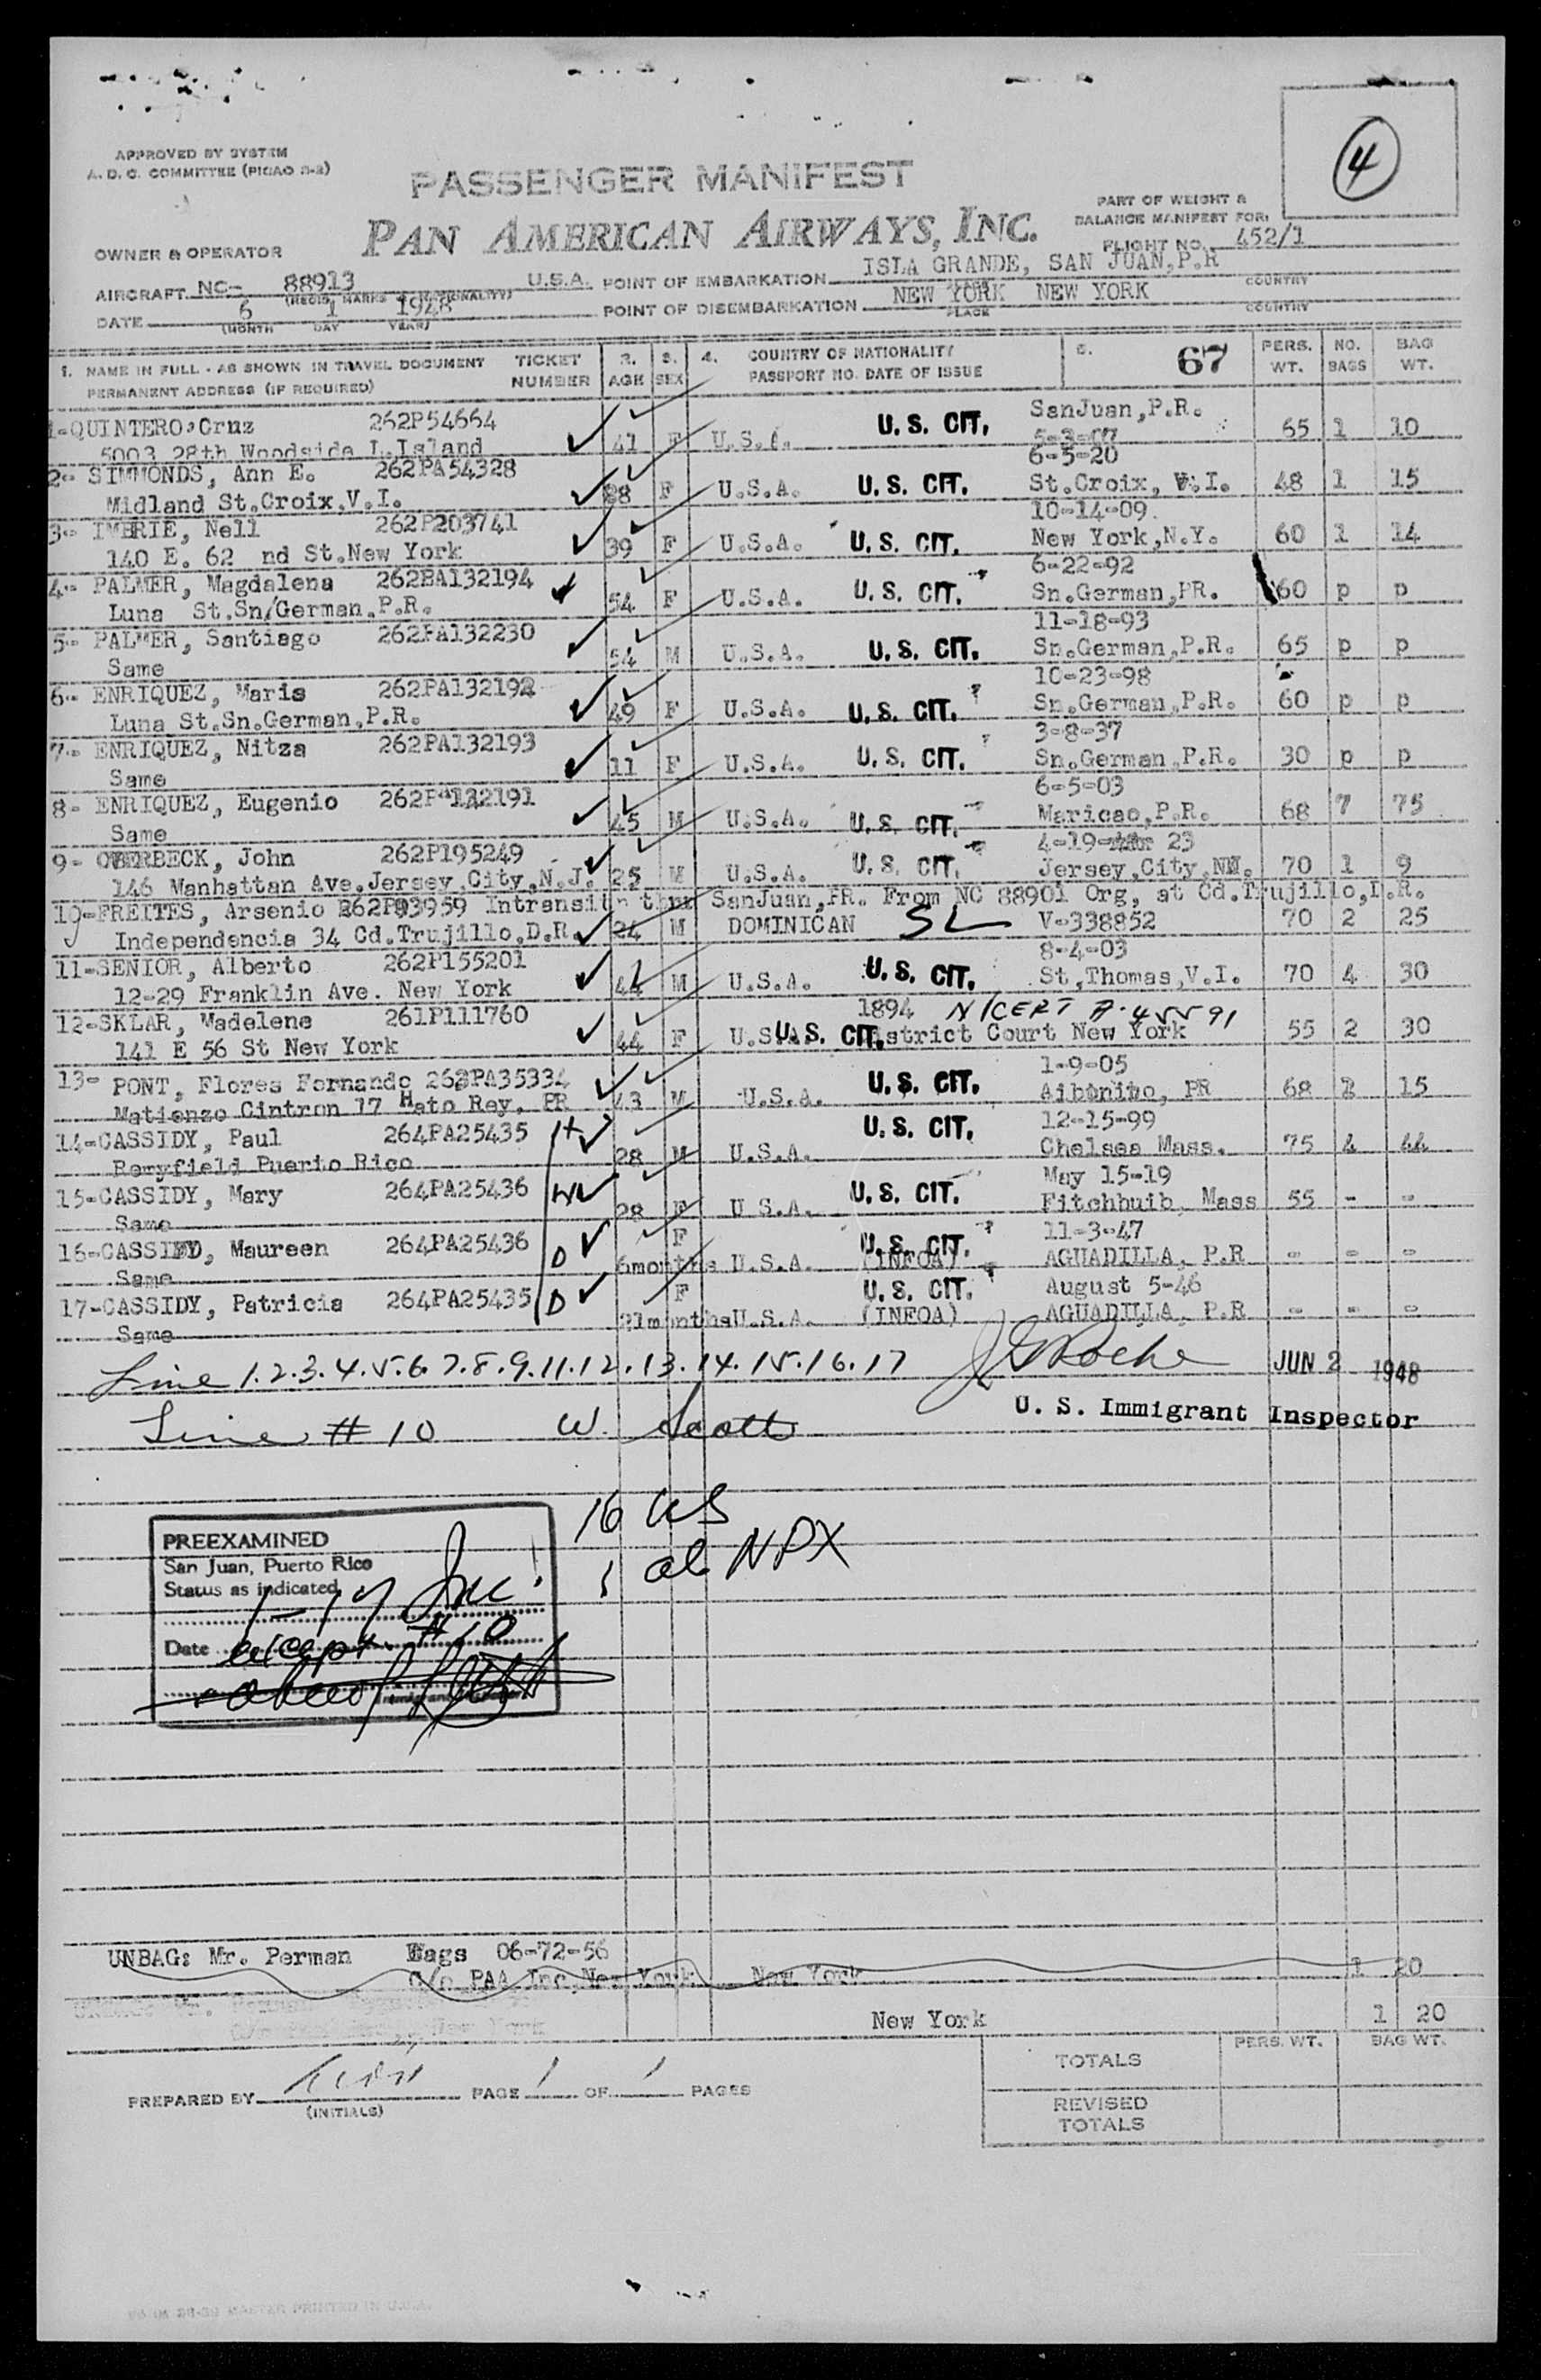 APPROVED BY SYSTEM
A. D. C. COMMITTEE (PICAO
4
PASSENGER MANIFEST
PAN AMERICAN AIRWAYS, INC.
PART OF WEIGHT &
BALANCE MANIFEST FOR:
FLIGHT NO. 452/1
OWNER & OPERATOR
AIRCRAFT NC- 88913 U.S.A. POINT OF EMBARKATION ISLA GRANDE, SAN JUAN, P.R COUNTRY
DATE 6 1 1948 POINT OF DISEMBARKATION NEW YORK NEW YORK COUNTRY
(MONTH DAY YEAR) PLACE
1. NAME IN FULL - AS SHOWN IN TRAVEL DOCUMENT TICKET 2. 3. 4. COUNTRY OF NATIONALITY 5. 67 PERS. NO. BAG
PERMANENT ADDRESS (IF REQUIRED) NUMBER AGE SEX PASSPORT NO. DATE OF ISSUE WT. BAGS WT.
1-QUINTERO, Cruz 262P54664 U. S. CIT. SanJuan, P.R.
5003 28th Woodside L.Island 41 F U.S.A. 5-3-07 65 1 10
6-5-20
2- SIMMONDS, Ann E. 262PA54328
Midland St.Croix.V.I. 28 F U.S.A. U. S. CIT. St.Croix, V.I. 48 1 15
10-14-09.
3- IMBRIE, Nell 262P203741
140 E. 62 nd St.New York 39 F U.S.A. U. S. CIT. New York,N.Y. 60 1 14
6-22-92
4- PALMER, Magdalena 262PA132194
Luna St.Sn/German.P.R. 54 F U.S.A. U. S. CIT. Sn.German,PR. 60 p p
11-18-93
5- PALMER, Santiago 262PA132230
Same 54 M U.S.A. U. S. CIT. Sn.German,P.R. 65 p p
10-23-98
6- ENRIQUEZ, Maris 262PA132192
Luna St.Sn.German,P.R. 49 F U.S.A. U. S. CIT. Sn.German,P.R. 60 p p
3-8-37
7- ENRIQUEZ, Nitza 262PA132193
Same 11 F U.S.A. U. S. CIT. Sn.German,P.R. 30 p p
6-5-03
8- ENRIQUEZ, Eugenio 262PA132191
Same 45 M U.S.A. U. S. CIT. Maricao,P.R. 68 7 75
4-19- 23
9- OVERBECK, John 262P195249
146 Manhattan Ave.Jersey,City,N.J. 25 M U.S.A. U. S. CIT. Jersey,City, 70 1 9
10-FREITES, Arsenio 262P93959 Intransit thru SanJuan,PR. From NC 88901 Org, at Cd.Trujillo,D.R.
Independencia 34 Cd.Trujillo,D.R. 24 M DOMINICAN SL V-338852 70 2 25
8-4-03
11-SENIOR, Alberto 262P155201
12-29 Franklin Ave. New York 44 M U.S.A. U. S. CIT. St,Thomas,V.I. 70 4 30
1894 N/CERT A.45591
12-SKLAR, Madelene 261P111760
141 E 56 St New York 44 F U.S.A. U. S. CIT. District Court New York 55 2 30
1-9-05
13- PONT, Flores Fernando 262PA35334
Matienzo Cintron 17 Hato Rey, PR 43 M U.S.A. U. S. CIT. Aibonito, PR 68 2 15
12-15-99
14-CASSIDY, Paul 264PA25435 H U. S. CIT.
Reryfield Puerto Rico 28 M U.S.A. Chelsea Mass. 75 4 44
May 15-19
15-CASSIDY, Mary 264PA25436 W U. S. CIT.
Same 28 F U.S.A. Fitchbuib, Mass 55 - -
11-3-47
16-CASSIDY, Maureen 264PA25436 D F U. S. CIT.
Same 6months U.S.A. (INFOA) AGUADILLA, P.R - - -
August 5-46
17-CASSIDY, Patricia 264PA25435 D F U. S. CIT.
Same 21months U.S.A. (INFOA) AGUADILLA, P.R - - -
Line 1.2.3.4.5.6.7.8.9.11.12.13.14.15.16.17 J G Roche JUN 2 1948
U. S. Immigrant Inspector
Line # 10 W. Scott
16 US
1 al NPX
PREEXAMINED
San Juan, Puerto Rico
Status as indicated
1-17 Inc.
Date except #10
UNBAG: Mr. Perman Bags 06-72-56
C/o PAA Inc,New York New York 1 20
New York 1 20
PERS. WT. BAG WT.
TOTALS
PREPARED BY PAGE 1 OF 1 PAGES
(INITIALS)
REVISED
TOTALS